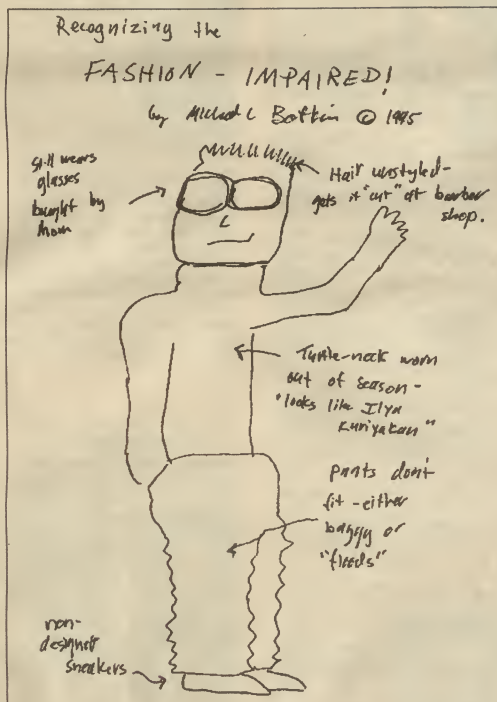 Recognizing the
FASHION - IMPAIRED!
by Michael Botkin © 1995
still wears
glasses
bought by
Mom
Hair unstyled-
gets it "cut" at barber
shop.
Turtle-neck worn
out of season-
"looks like Ilya
Kuriyakan"
pants don't
fit - either
baggy or
"floods"
non-
designer
sneakers